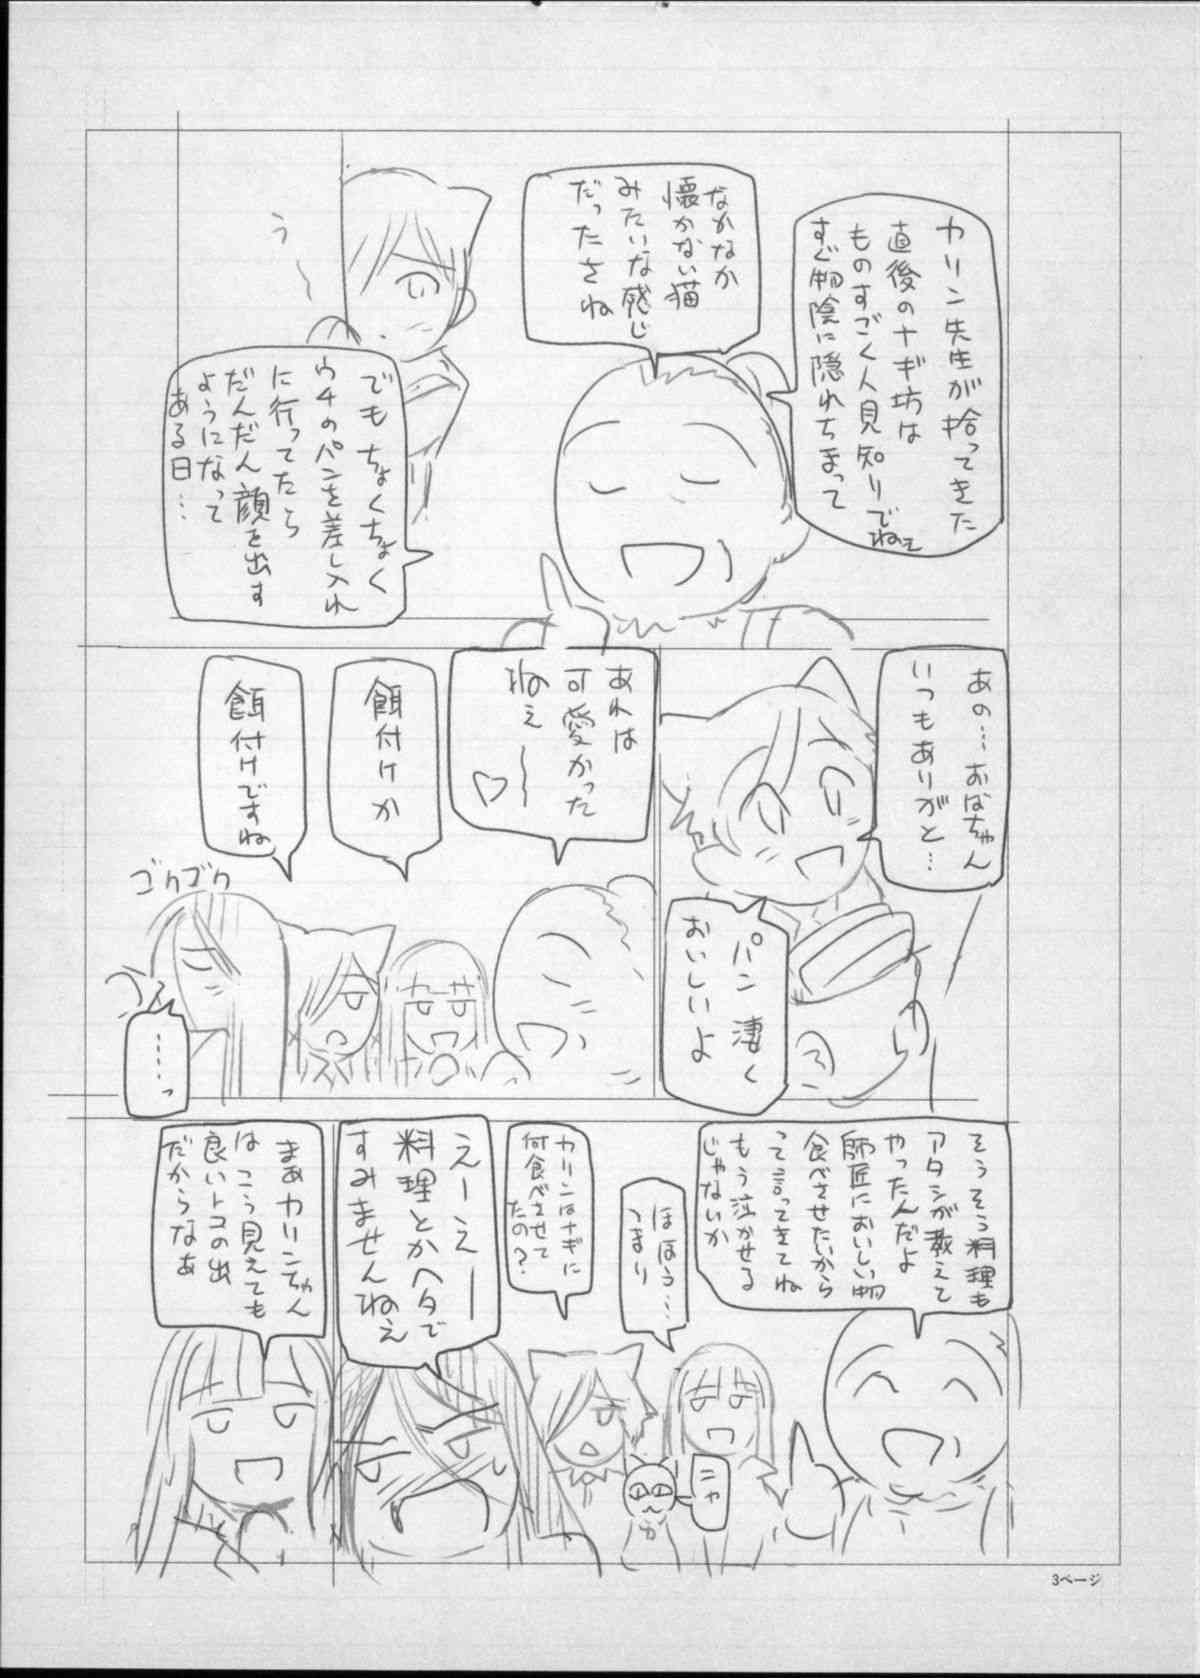 カリン先生が拾ってきた
直後のナギ坊は
ものすごく人見知りでねぇ
すぐ物陰に隠れちまって
なかなか
懐かない猫
みたいな感じ
だったさね
う
でもちょくちょく
ウチのパンを差し入れ
に行ってたら
だんだん顔を出す
ようになって
ある日…
あの…おばちゃん
いつもありがと…
パン凄く
おいしいよ
あれは
可愛かった
ねぇ〜〜♡
餌付けか
餌付けですね
ゴクゴク
……っ
そうそう料理も
アタシが教えて
やったんだよ
師匠においしい物
食べさせたいから
って言ってきてね
もう泣かせる
じゃないか
ほほう…
つまり
ニャ
カリンはナギに
何食べさせて
たの?
えーえー
料理とかヘタで
すみませんねぇ
まぁカリンちゃん
はこう見えても
良いトコの出
だからなぁ
3ページ